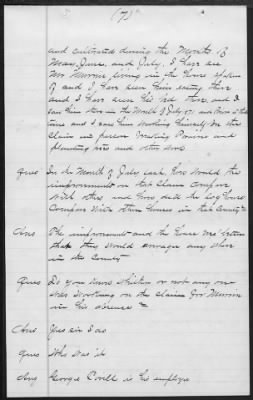 (7)
and cultivated during the Months of
May, June, and July. I have seen
Mr living in the house spoken
of and I have seen him eating there
and I have seen his bed there, and I
saw him there in the Month of July
time and I saw him working himself on the
Claim in person making Posts and
planting and other work
Ques In the Month of July each, how would the
improvements on that Claim compare
with others and how did the Log house
Compare with other houses in that County
Ans The improvements and the house was better
than they would average any other
in the County
Ques Do you know whether or not any one
was working on the claim for
in his absence
Ans Yes sir I do
Ques Who was it
Ans George is his employe